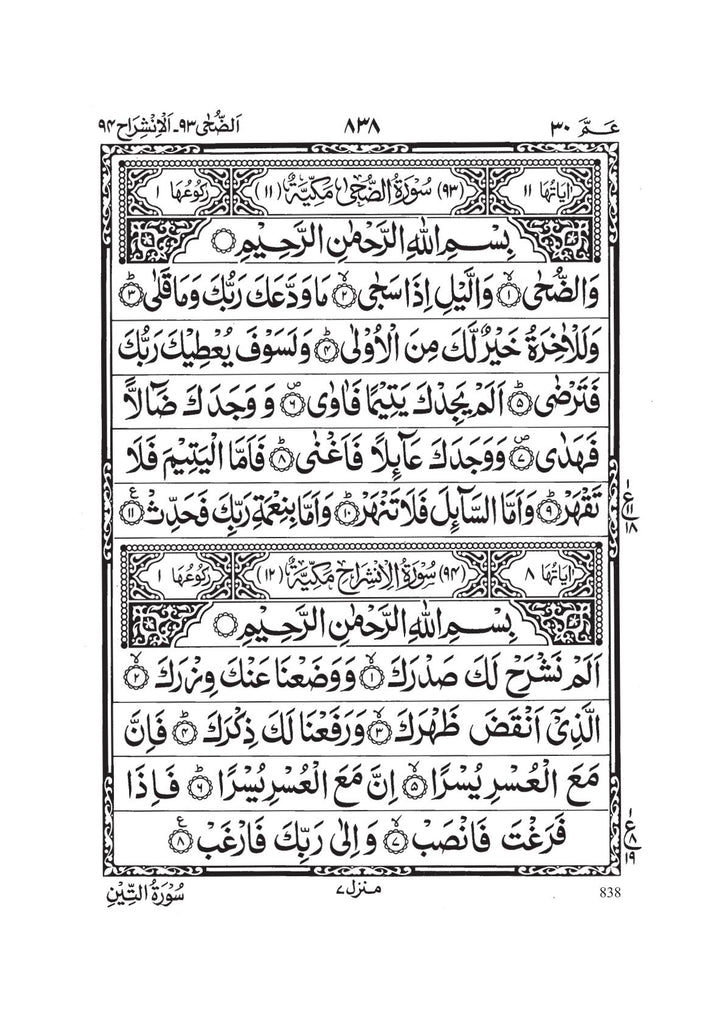 عَمَّ ٣٠ ٨٣٨ اَلضُّحٰى ٩٣۔ اَلْاِنْشِرَاح ٩٤
اٰيَاتُهَا ١١ (٩٣) سُوْرَةُ الضُّحٰى مَكِّيَّةٌ (١١) رُكُوْعُهَا ١
بِسْمِ اللّٰهِ الرَّحْمٰنِ الرَّحِيْمِ ۝
وَالضُّحٰى ۝١ۙ وَالَّيْلِ اِذَا سَجٰى ۝٢ۙ مَا وَدَّعَكَ رَبُّكَ وَمَا قَلٰى ۝٣ؕ
وَلَلْاٰخِرَةُ خَيْرٌ لَّكَ مِنَ الْاُوْلٰى ۝٤ؕ وَلَسَوْفَ يُعْطِيْكَ رَبُّكَ
فَتَرْضٰى ۝٥ؕ اَلَمْ يَجِدْكَ يَتِيْمًا فَاٰوٰى ۝٦۪ وَوَجَدَكَ ضَآلًّا
فَهَدٰى ۝٧۪ وَوَجَدَكَ عَآئِلًا فَاَغْنٰى ۝٨ؕ فَاَمَّا الْيَتِيْمَ فَلَا
تَقْهَرْ ۝٩ؕ وَاَمَّا السَّآئِلَ فَلَا تَنْهَرْ ۝١٠ؕ وَاَمَّا بِنِعْمَةِ رَبِّكَ فَحَدِّثْ ۝١١ۧ
١
ع
١١
١٨
اٰيَاتُهَا ٨ (٩٤) سُوْرَةُ الْاِنْشِرَاحِ مَكِّيَّةٌ (١٢) رُكُوْعُهَا ١
بِسْمِ اللّٰهِ الرَّحْمٰنِ الرَّحِيْمِ ۝
اَلَمْ نَشْرَحْ لَكَ صَدْرَكَ ۝١ۙ وَوَضَعْنَا عَنْكَ وِزْرَكَ ۝٢ۙ
الَّذِيْٓ اَنْقَضَ ظَهْرَكَ ۝٣ۙ وَرَفَعْنَا لَكَ ذِكْرَكَ ۝٤ؕ فَاِنَّ
مَعَ الْعُسْرِ يُسْرًا ۝٥ۙ اِنَّ مَعَ الْعُسْرِ يُسْرًا ۝٦ؕ فَاِذَا
فَرَغْتَ فَانْصَبْ ۝٧ۙ وَاِلٰى رَبِّكَ فَارْغَبْ ۝٨ۧ
١
ع
٨
١٩
838 منزل ٧ سُوْرَةُ التِّيْنِ